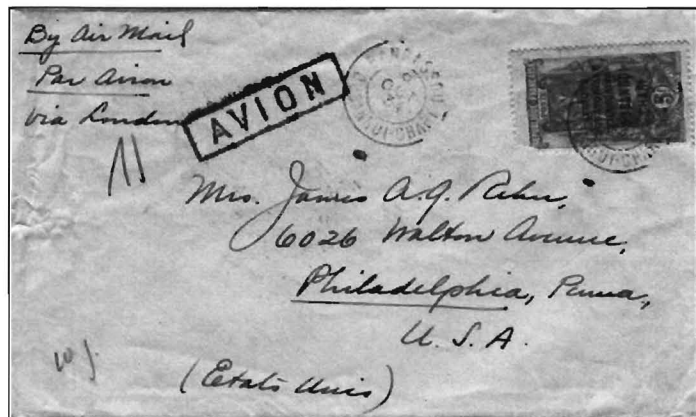 By Air Mail
Par Avion
via London
AVION
Mrs. James A.G. Rehn,
6026 Walton Avenue,
Philadelphia, Penna,
U. S. A.
(Etats Unis)